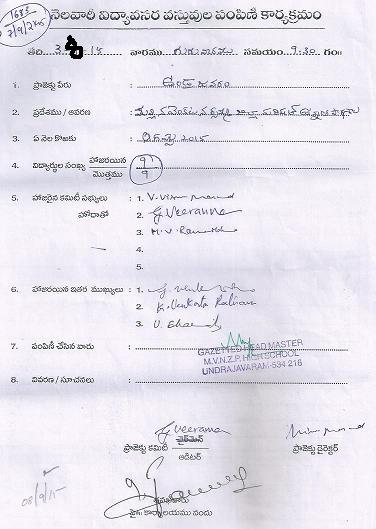 1683
7/9/2015
నెలవారీ విద్యావసర వస్తువుల పంపిణీ కార్యక్రమం
తేది 15 వారము గురువారము సమయం 9:30 గం॥
1. ప్రాజెక్టు పేరు : ఉండ్రాజవరం
2. ప్రదేశము / ఆవరణ : జిల్లా పరిషత్ ఉన్నత పాఠశాల
3. ఏ నెల కొఱకు : 2015
4. విద్యార్థుల సంఖ్య హాజరయిన / మొత్తము : 9 / 9
5. హాజరైన కమిటీ సభ్యులు : 1.
హోదాతో 2. G Veeranna
3. M.V.
4.
5.
6. హాజరయిన ఇతర ముఖ్యులు : 1.
2. K. Venkata Ratnam
3.
7. పంపిణీ చేసిన వారు :
GAZETTED HEAD MASTER
M.V.N.Z.P. HIGH SCHOOL
UNDRAJAVARAM-534 216
8. వివరణ / సూచనలు :
G Veeranna
ప్రాజెక్టు కమిటీ చైర్మెన్ ప్రాజెక్టు డైరెక్టర్
ఆడిటర్
08/9/15
కార్యాలయము నందు